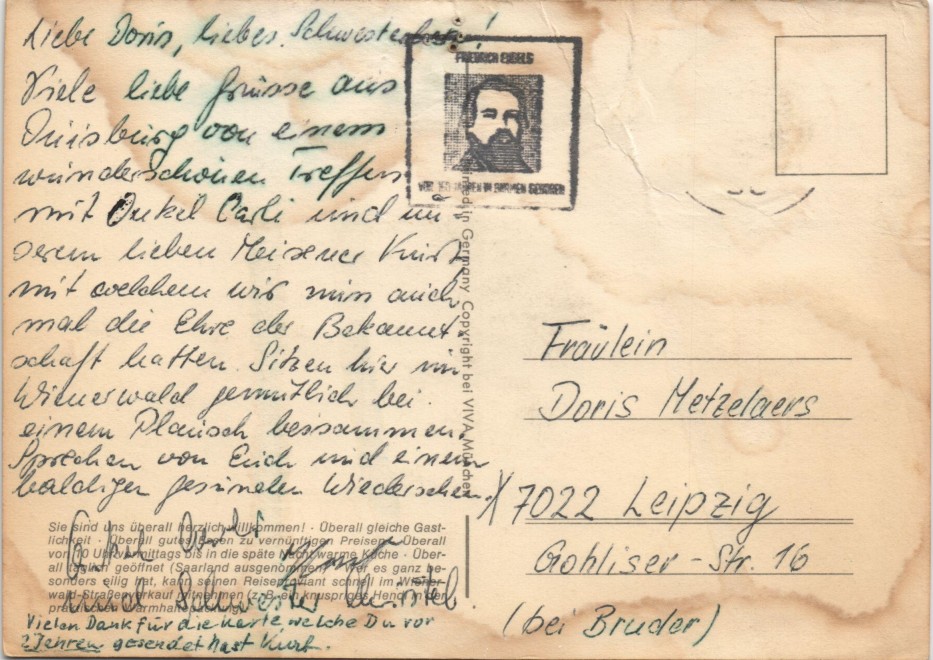 Liebe Doris, liebes
Viele liebe Grüsse aus
Duisburg von einem
wunderschönen Treffen
mit Onkel Carli und un
serem lieben Meisener Kurt,
mit welchem wir nun auch
mal die Ehre der Bekannt-
schaft hatten. Sitzen hier im
Wienerwald gemütlich bei
einem Plausch beisammen.
Sprechen von Euch und einem
baldigen gesunden Wiedersehen.
Onkel Carli
und Schwester
Vielen Dank für die Karte welche Du vor
2 Jahren gesendet hast Kurt.
Sie sind uns überall herzlich willkommen! · Überall gleiche Gast-
lichkeit · Überall gutes Essen zu vernünftigen Preisen · Überall
von 10 Uhr vormittags bis in die späte Nacht warme Küche · Über-
all täglich geöffnet (Saarland ausgenommen) · Wer es ganz be-
sonders eilig hat, kann seinen Reiseproviant schnell im Wiener-
wald-Straßenverkauf mitnehmen (z. B. ein knuspriges Hendl in der
FRIEDRICH ENGELS
VOR 150 JAHREN IN BARMEN GEBOREN
Printed in Germany Copyright bei VIVA München
Fräulein
Doris Metzelaers
X 7022 Leipzig
Gohliser-Str. 16
(bei Bruder)